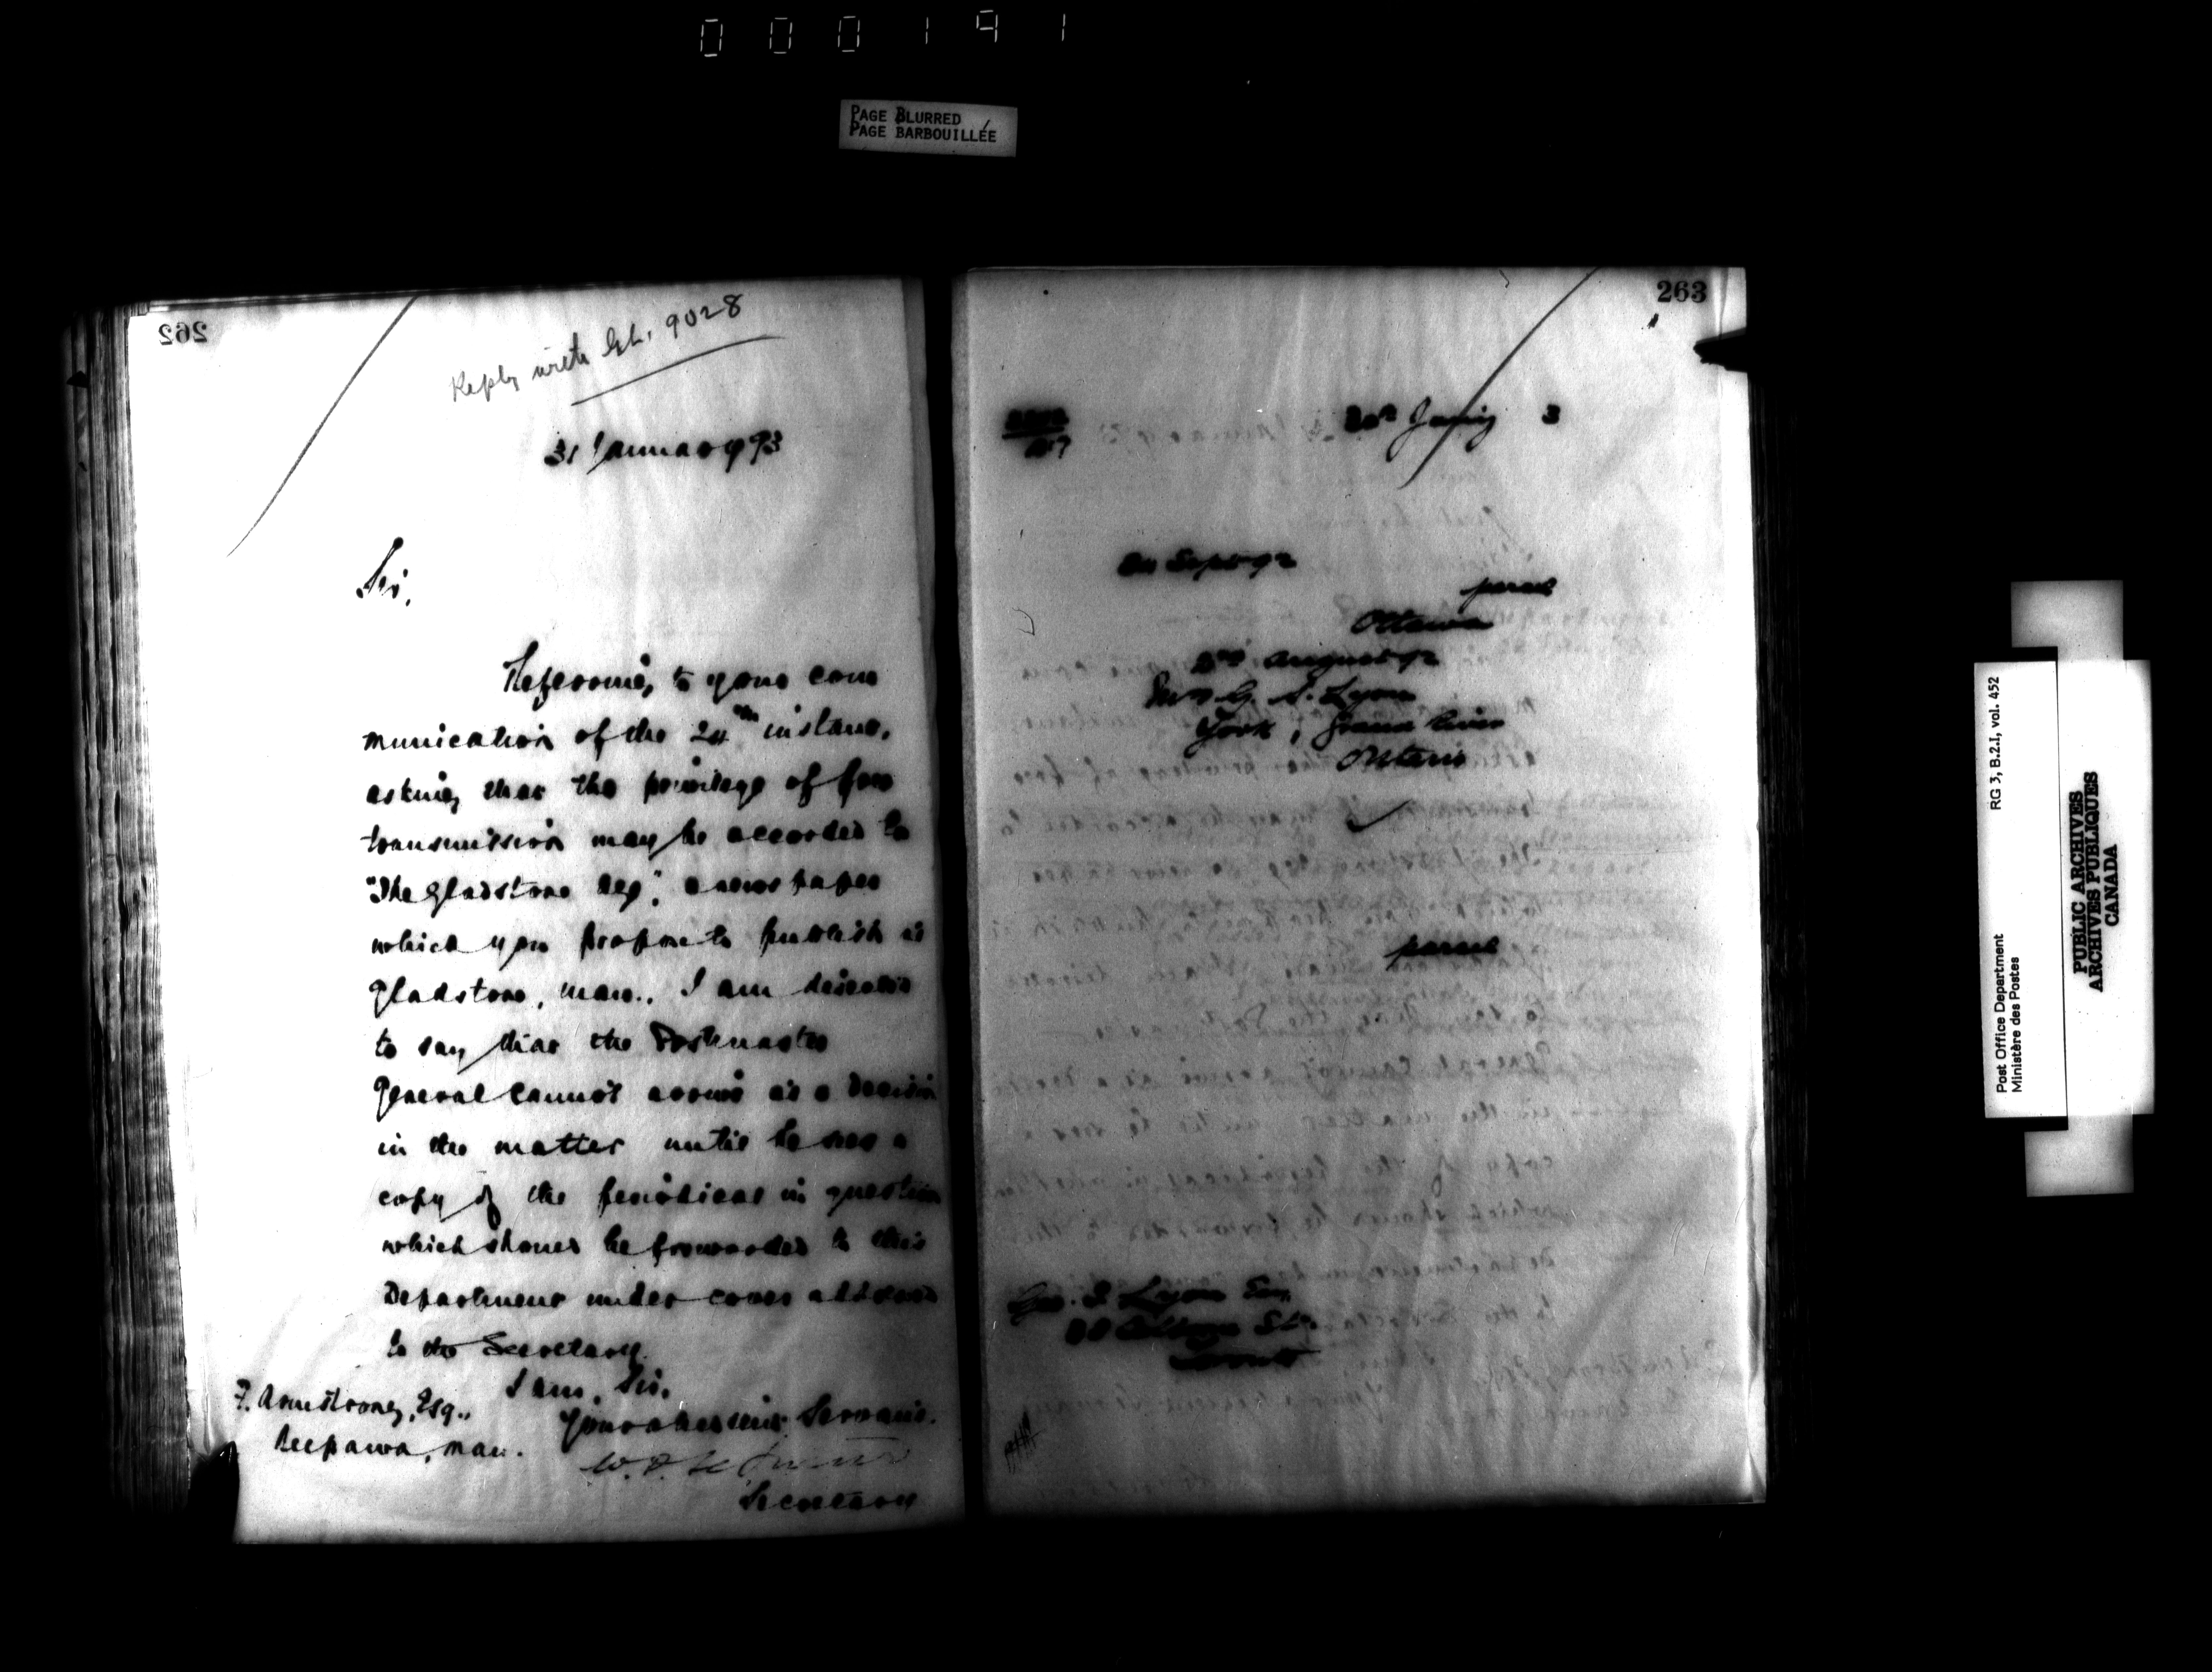 000191
PAGE BLURRED
PAGE BARBOUILLÉE
262
Reply with GL. 9028
31 January 93
Sir,
Referring to your com
munication of the 24th instant,
asking that the privilege of free
transmission may be accorded to
"The Gladstone Age", a newspaper
which you propose to publish at
Gladstone, Man., I am directed
to say that the Postmaster
General cannot arrive at a decision
in the matter until he sees a
copy of the periodical in question
which should be forwarded to this
Department under cover addressed
to the Secretary.
I am, Sir,
Your obedient Servant.
Secretary
F. Armstrong, Esq.,
Neepawa, Man.
263
3
Sept 92
parcel
Ottawa
August 92
G. S. Lyon
York, Grand River
Ontario
parcel
Geo. S Lyon Esq.
Post Office Department
Ministère des Postes
RG 3, B.2.I, vol. 452
PUBLIC ARCHIVES
ARCHIVES PUBLIQUES
CANADA